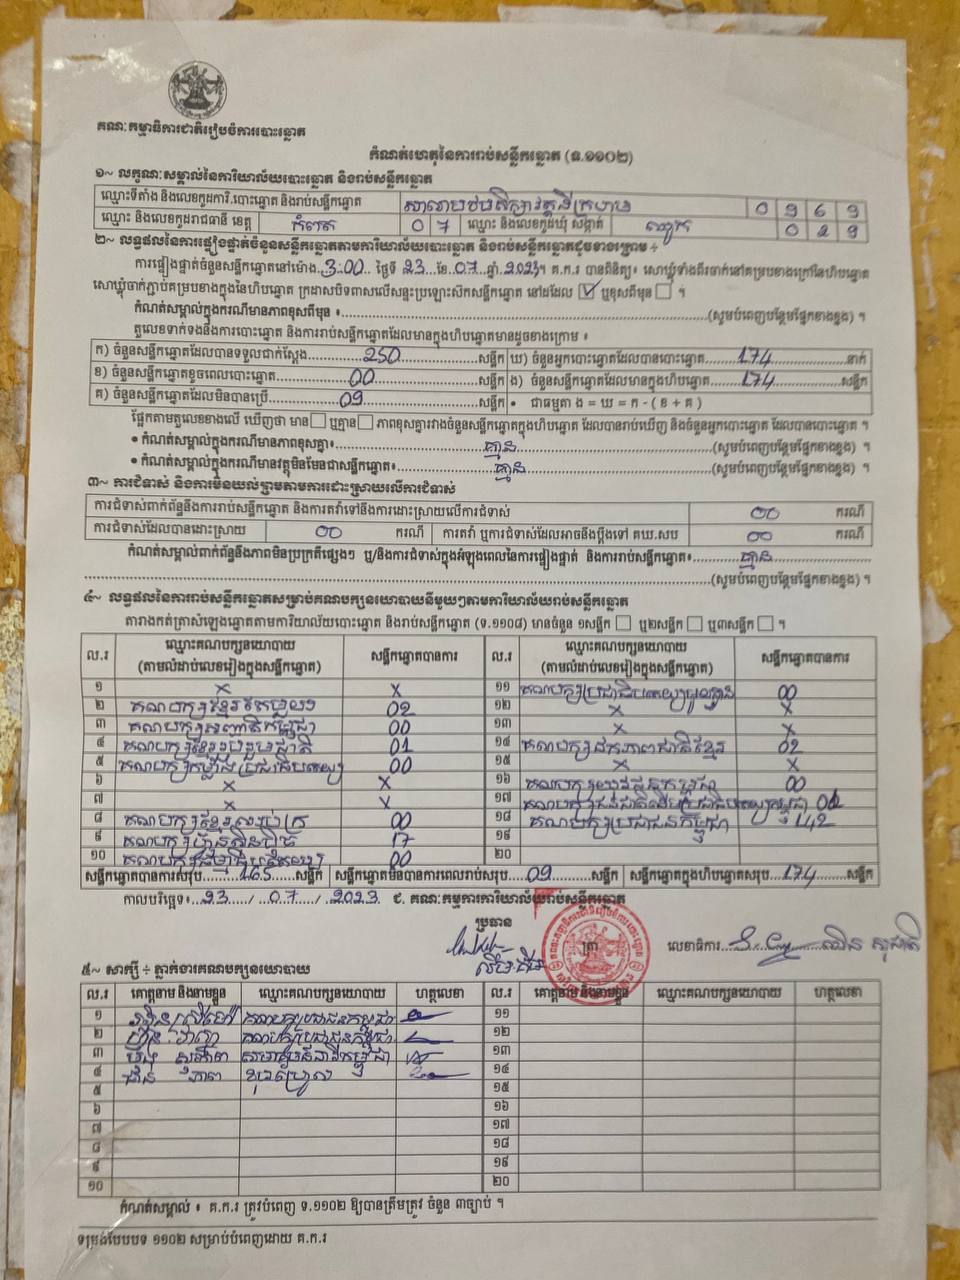 គណៈកម្មាធិការជាតិរៀបចំការបោះឆ្នោត
កំណត់ហេតុនៃការរាប់សន្លឹកឆ្នោត (ទ.១១០២)
១~ លក្ខណៈសម្គាល់នៃការិយាល័យបោះឆ្នោត និងរាប់សន្លឹកឆ្នោត
ឈ្មោះទីតាំង និងលេខកូដការិ.បោះឆ្នោត និងរាប់សន្លឹកឆ្នោត 0969
ឈ្មោះ និងលេខកូដរាជធានី ខេត្ត កំពត 07 ឈ្មោះ និងលេខកូដឃុំ សង្កាត់ ឈូក 029
២~ លទ្ធផលនៃការផ្ទៀងផ្ទាត់ចំនួនសន្លឹកឆ្នោតតាមការិយាល័យបោះឆ្នោត និងរាប់សន្លឹកឆ្នោតដូចខាងក្រោម ÷
ការផ្ទៀងផ្ទាត់ចំនួនសន្លឹកឆ្នោតនៅម៉ោង 3:00 ថ្ងៃទី 23 ខែ 07 ឆ្នាំ 2023។ គ.ក.រ បានពិនិត្យ៖ សោឃ្លុំទាំងពីរចាក់នៅគម្របខាងក្រៅនៃហិបឆ្នោត
សោឃ្លុំចាក់ភ្ជាប់គម្របខាងក្នុងនៃហិបឆ្នោត ក្រដាសបិទពាសលើសន្ទះប្រឡោះសឹកសន្លឹកឆ្នោត នៅដដែល ✓ ឬខុសពីមុន ។
កំណត់សម្គាល់ក្នុងករណីមានភាពខុសពីមុន ៖ (សូមបំពេញបន្ថែមផ្នែកខាងខ្នង) ។
តួលេខទាក់ទងនឹងការបោះឆ្នោត និងការរាប់សន្លឹកឆ្នោតដែលមានក្នុងហិបឆ្នោតមានដូចខាងក្រោម ៖
ក) ចំនួនសន្លឹកឆ្នោតដែលបានទទួលជាក់ស្តែង 250 សន្លឹក ឃ) ចំនួនអ្នកបោះឆ្នោតដែលបានបោះឆ្នោត 174 នាក់
ខ) ចំនួនសន្លឹកឆ្នោតខូចពេលបោះឆ្នោត 00 សន្លឹក ង) ចំនួនសន្លឹកឆ្នោតដែលមានក្នុងហិបឆ្នោត 174 សន្លឹក
គ) ចំនួនសន្លឹកឆ្នោតដែលមិនបានប្រើ 09 សន្លឹក • ជាធម្មតា ង = ឃ = ក - ( ខ + គ )
ផ្អែកតាមតួលេខខាងលើ ឃើញថា មាន ឬគ្មាន ភាពខុសគ្នារវាងចំនួនសន្លឹកឆ្នោតក្នុងហិបឆ្នោត ដែលបានរាប់ឃើញ និងចំនួនអ្នកបោះឆ្នោត ដែលបានបោះឆ្នោត ។
• កំណត់សម្គាល់ក្នុងករណីមានភាពខុសគ្នា៖ គ្មាន (សូមបំពេញបន្ថែមផ្នែកខាងខ្នង) ។
• កំណត់សម្គាល់ក្នុងករណីមានវត្ថុមិនមែនជាសន្លឹកឆ្នោត៖ គ្មាន (សូមបំពេញបន្ថែមផ្នែកខាងខ្នង) ។
៣~ ការជំទាស់ និងការមិនយល់ព្រមតាមការដោះស្រាយលើការជំទាស់
ការជំទាស់ពាក់ព័ន្ធនឹងការរាប់សន្លឹកឆ្នោត និងការតវ៉ាទៅនឹងការដោះស្រាយលើការជំទាស់ 00 ករណី
ការជំទាស់ដែលបានដោះស្រាយ 00 ករណី ការតវ៉ា ឬការជំទាស់ដែលអាចនឹងប្តឹងទៅ គឃ.សប 00 ករណី
កំណត់សម្គាល់ពាក់ព័ន្ធនឹងភាពមិនប្រក្រតីផ្សេងៗ ឬ/និងការជំទាស់ក្នុងអំឡុងពេលនៃការផ្ទៀងផ្ទាត់ និងការរាប់សន្លឹកឆ្នោត៖ គ្មាន
(សូមបំពេញបន្ថែមផ្នែកខាងខ្នង) ។
៤~ លទ្ធផលនៃការរាប់សន្លឹកឆ្នោតសម្រាប់គណបក្សនយោបាយនីមួយៗតាមការិយាល័យរាប់សន្លឹកឆ្នោត
តារាងកត់ត្រាសំឡេងឆ្នោតតាមការិយាល័យបោះឆ្នោត និងរាប់សន្លឹកឆ្នោត (ទ.១១០៨) មានចំនួន ១សន្លឹក ឬ២សន្លឹក ឬ៣សន្លឹក ។
ល.រ ឈ្មោះគណបក្សនយោបាយ (តាមលំដាប់លេខរៀងក្នុងសន្លឹកឆ្នោត) សន្លឹកឆ្នោតបានការ ល.រ ឈ្មោះគណបក្សនយោបាយ (តាមលំដាប់លេខរៀងក្នុងសន្លឹកឆ្នោត) សន្លឹកឆ្នោតបានការ
១ x x ១១ 00
២ គណបក្សខ្មែរតែមួយ 02 ១២ x x
៣ គណបក្សសញ្ជាតិកម្ពុជា 00 ១៣ x x
៤ គណបក្សខ្មែររួបរួមជាតិ 01 ១៤ គណបក្សឯកភាពជាតិខ្មែរ 02
៥ គណបក្សកម្លាំងប្រជាធិបតេយ្យ 00 ១៥ x x
៦ x x ១៦ 00
៧ x x ១៧ គណបក្សជនជាតិដើមប្រជាធិបតេយ្យកម្ពុជា
៨ 00 ១៨ គណបក្សប្រជាជនកម្ពុជា 142
៩ គណបក្សហ៊្វុនស៊ិនប៉ិច 17 ១៩
១០ 00 ២០
សន្លឹកឆ្នោតបានការសរុប 165 សន្លឹក សន្លឹកឆ្នោតមិនបានការពេលរាប់សរុប 09 សន្លឹក សន្លឹកឆ្នោតក្នុងហិបឆ្នោតសរុប 174 សន្លឹក
កាលបរិច្ឆេទ៖ 23 / 07 / 2023 ជ. គណៈកម្មការការិយាល័យរាប់សន្លឹកឆ្នោត
ប្រធាន ត្រា លេខាធិការ
៥~ សាក្សី ÷ ភ្នាក់ងារគណបក្សនយោបាយ
ល.រ គោត្តនាម និងនាមខ្លួន ឈ្មោះគណបក្សនយោបាយ ហត្ថលេខា ល.រ គោត្តនាម និងនាមខ្លួន ឈ្មោះគណបក្សនយោបាយ ហត្ថលេខា
១ គណបក្សប្រជាជនកម្ពុជា ១១
២ គណបក្សប្រជាជនកម្ពុជា ១២
៣ ១៣
៤ ១៤
៥ ១៥
៦ ១៦
៧ ១៧
៨ ១៨
៩ ១៩
១០ ២០
កំណត់សម្គាល់ ៖ គ.ក.រ ត្រូវបំពេញ ទ.១១០២ ឱ្យបានត្រឹមត្រូវ ចំនួន ៣ច្បាប់ ។
ទម្រង់បែបបទ ១១០២ សម្រាប់បំពេញដោយ គ.ក.រ